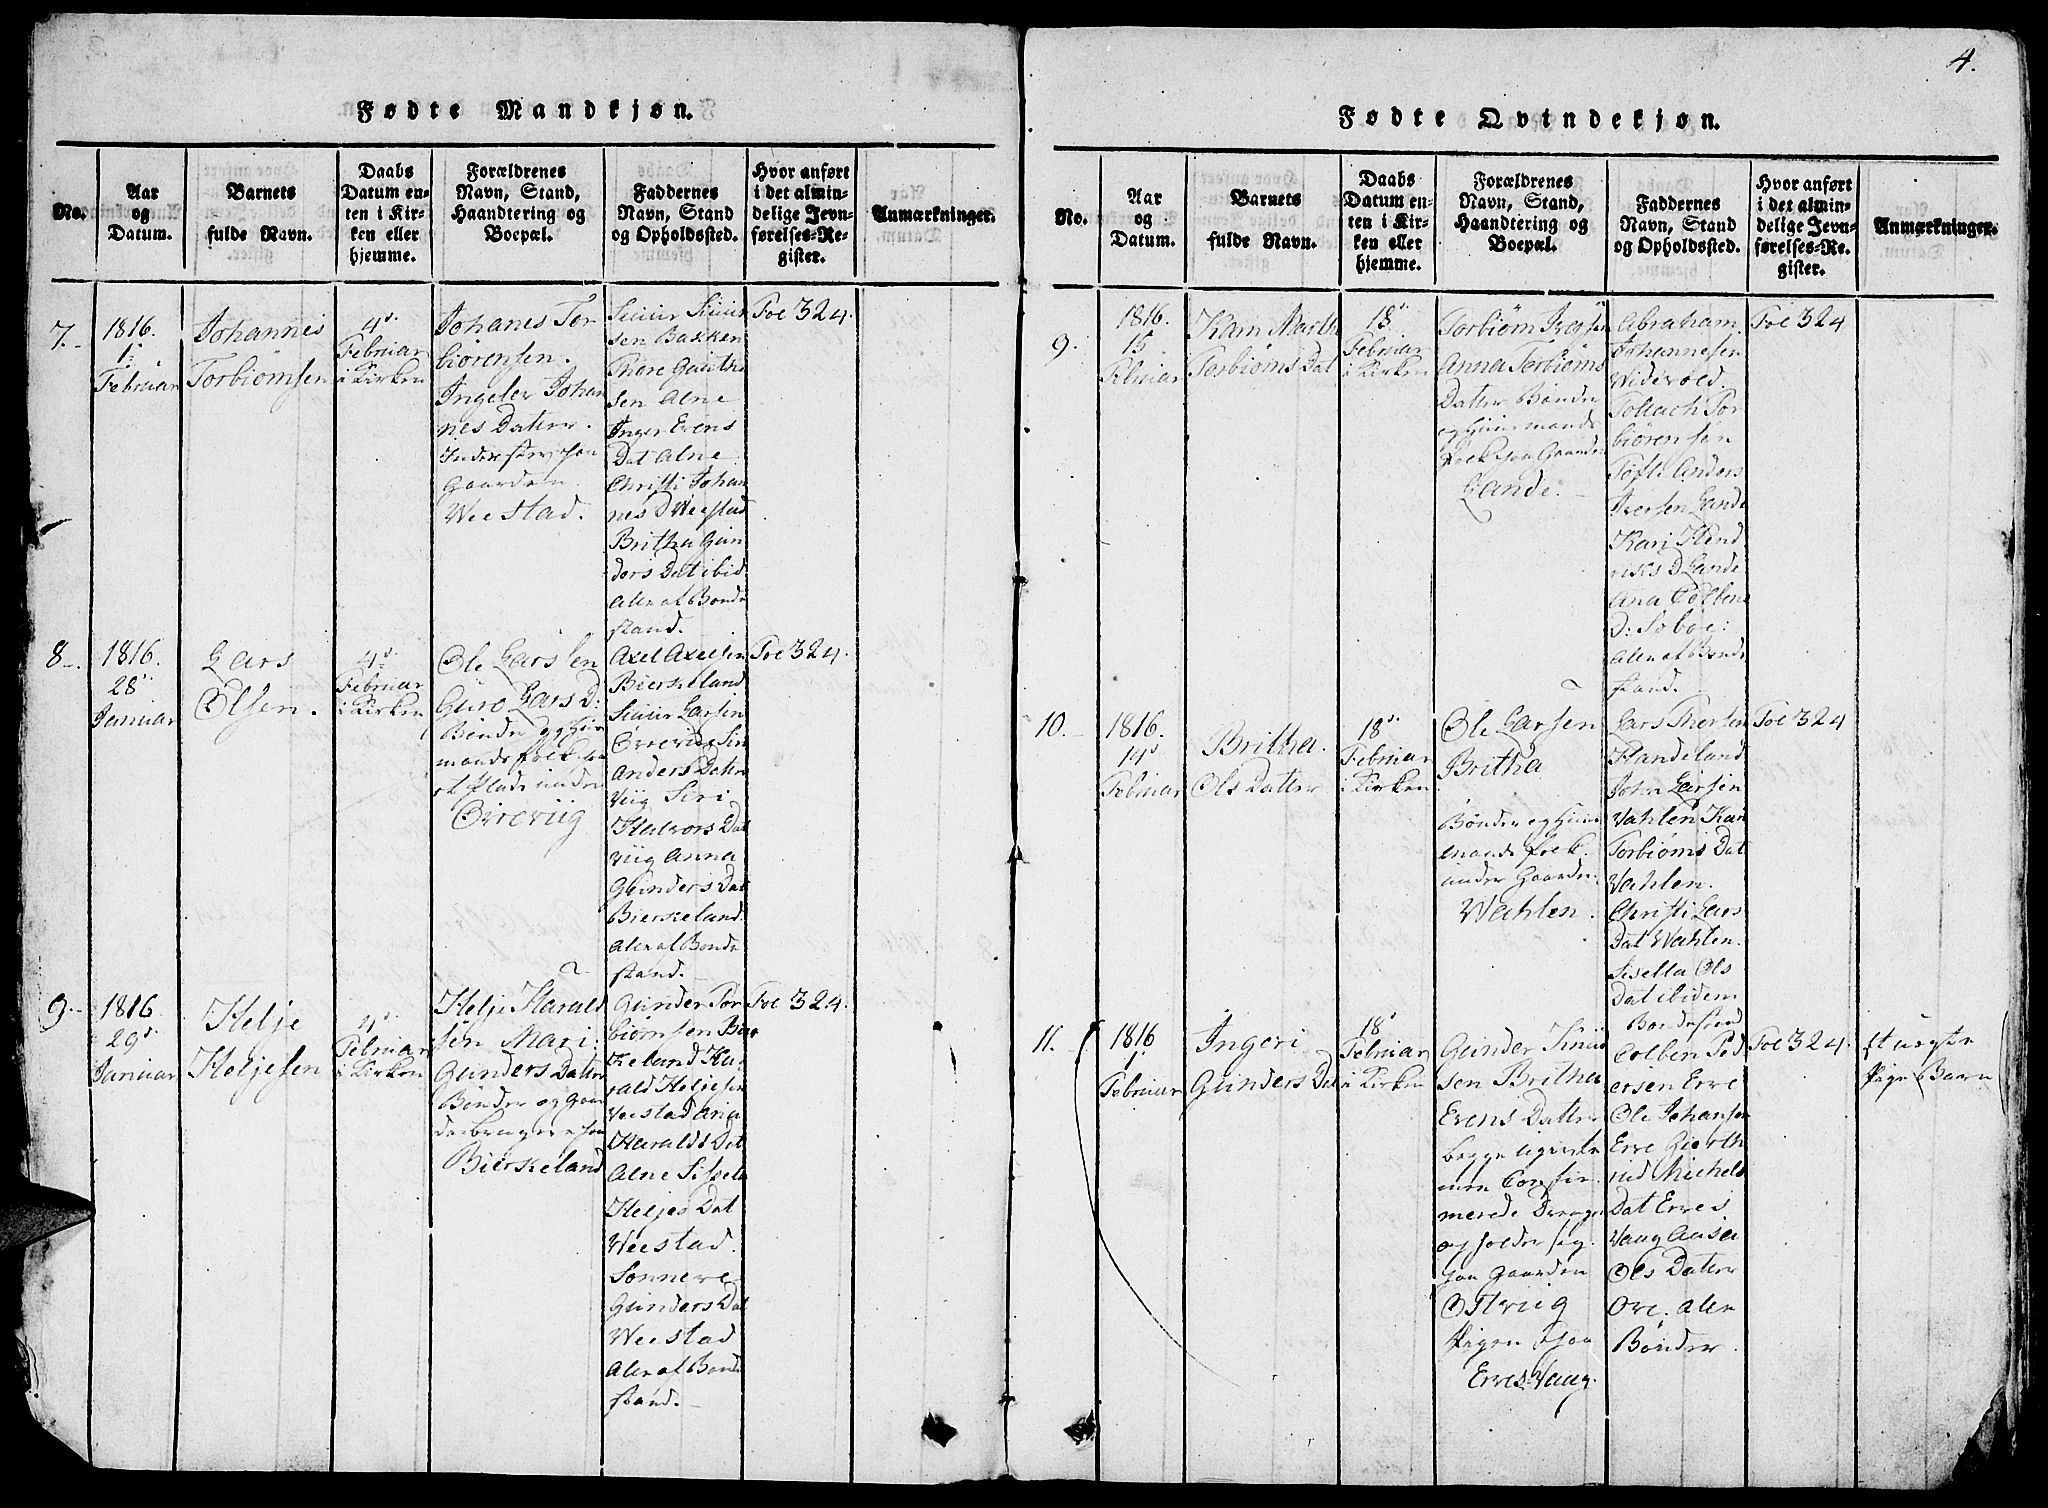 4.
Fødte Mandkjøn.
No.
Aar
og
Datum.
Barnets
fulde Navn.
Daabs
Datum en-
ten i Kir-
ken eller
hjemme.
Forældrenes
Navn, Stand,
Haandtering og
Boepæl.
Faddernes
Navn, Stand
og Opholdssted.
Hvor anført
i det almin-
delige Jevn-
førelses-Re-
gister.
Anmærkninger.
7.
1816.
1.
Februar
Johannes
Torbiørnsen
4de
Februar
i Kirken
Johanes Tor
biörensen.
Ingeler Johan
nes Datter.
gaarden
Weestad.
Siuur Siuur
sen Bakken
Thore Gunth
sen Alne
Inger Evens
Dat Alne
Christi Johan
nes D Weestad
Britha Gun
ders Dat ibid
Alle af Bonde
stand.
Foe 324.
8.
1816.
28
Januar
Lars
Olsen.
4de
Februar
i Kirken
Ole Larssen
Guro Lars D:
Bønder og Huus
mands folk paa
et Plads under
Örreviig
Axel Axelsen
Bierkeland
Siuur Larsen
Örreviig Siri
Anders Datter
Viig Siri
Halvors Dat
Viig Anna
Gunders Dat
Bierkeland.
Alle af Bonde
stand.
Foe 324.
9.
1816
29d
Januar
Helje
Heljesen
4de
Februar
i Kirken
Helje Harald
sen Mari
Gunders Datter
Bønder og Gaar
debrugere paa
Bierkeland
Gunder Tor
biømsen Bier
keland Ha
rald Heljesen
Veestad Aria
Haralds Dat
Alne Sissela
Heljes Dat
Weestad.
Sönneve
Gunders Dat
Weestad
Alle af Bonde
stand.
Foe 324.
Fødte Qvindekjøn.
No.
Aar
og
Datum.
Barnets
fulde Navn.
Daabs
Datum en-
ten i Kir-
ken eller
hjemme.
Forældrenes
Navn, Stand,
Haandtering og
Boepæl.
Faddernes
Navn, Stand
og Opholdssted.
Hvor anført
i det almin-
delige Jevn-
førelses-Re-
gister.
Anmærkninger.
9.
1816.
15.
Februar
Karn Marth
Torbiøms Dat
18
Februar
i Kirken
Torbiøm Iversen
Anna Torbiøms
Datter Bønder
og Huusmands
folk paa Gaarden
Lande.
Abraham
Johannesen
Widevold.
Tollach Tor
biørensen
Toft: Anders
Iversen Lande
Kari Hend
reks D Lande
Ana Colbens
D: Soboe:
Alle af Bonde
stand.
Foe 324
10.
1816.
14d
Februar
Britha.
Ols Datter
18
Februar
i Kirken
Ole Larsen
Britha
Bønder og Huus
mands folk
under Gaarden
Wahlen.
Lars Thorsen
Handeland
John Larsen
Vahlen Kari
Torbiøms Dat
Vahlen.
Christi Lars
Dat Wahlen.
Sisella Ols
Dat ibidem
Bondestand
Foe 324
11.
1816
1.
Februar
Ingeri
Gunders Dat
18
Februar
i Kirken
Gunder Knud
sen Britha
Evens Datter
begge ugivte
men Confir
merede
opholder sig
paa Gaarden
Ostviig
Pigen paa
Erres-Vaag.
Colben Ped
ersen Erre
Ole Johansen
Erre Gierth
rud Michels
Dat Erres
Vaag Aasa
Ols Datter
Ore. Alle
Bønder.
Foe 324.
Uægte
Pige Barn